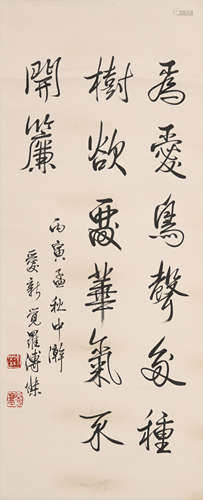 為愛鳥聲多種
樹欲霑華氣不
開簾
丙寅孟秋中澣
愛新覺羅溥傑